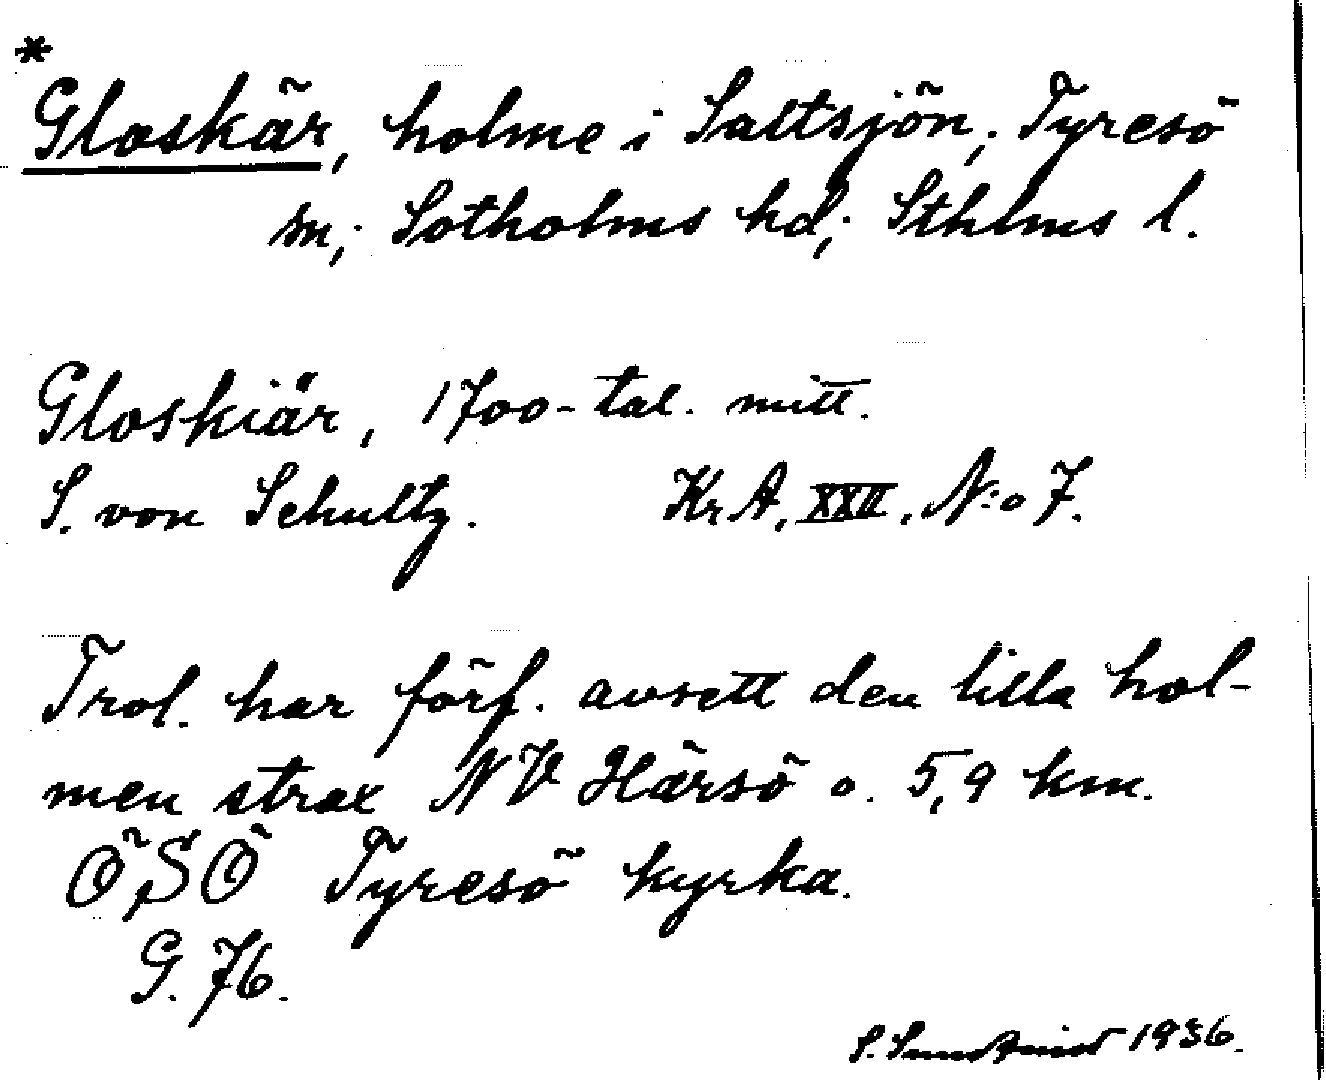 *
Gloskär, holme i Saltsjön; Tyresö
sn; Sotholms hd; Sthlms l.
Gloskiär, 1700-tal. mitt.
S. von Schultz. KrA, XXII, N:o 7.
Trol. har förf. avsett den lilla hol-
men strax NV Härsö o. 5,9 km.
ÖSÖ Tyresö kyrka.
G. 76.
S. Sundqvist 1936.